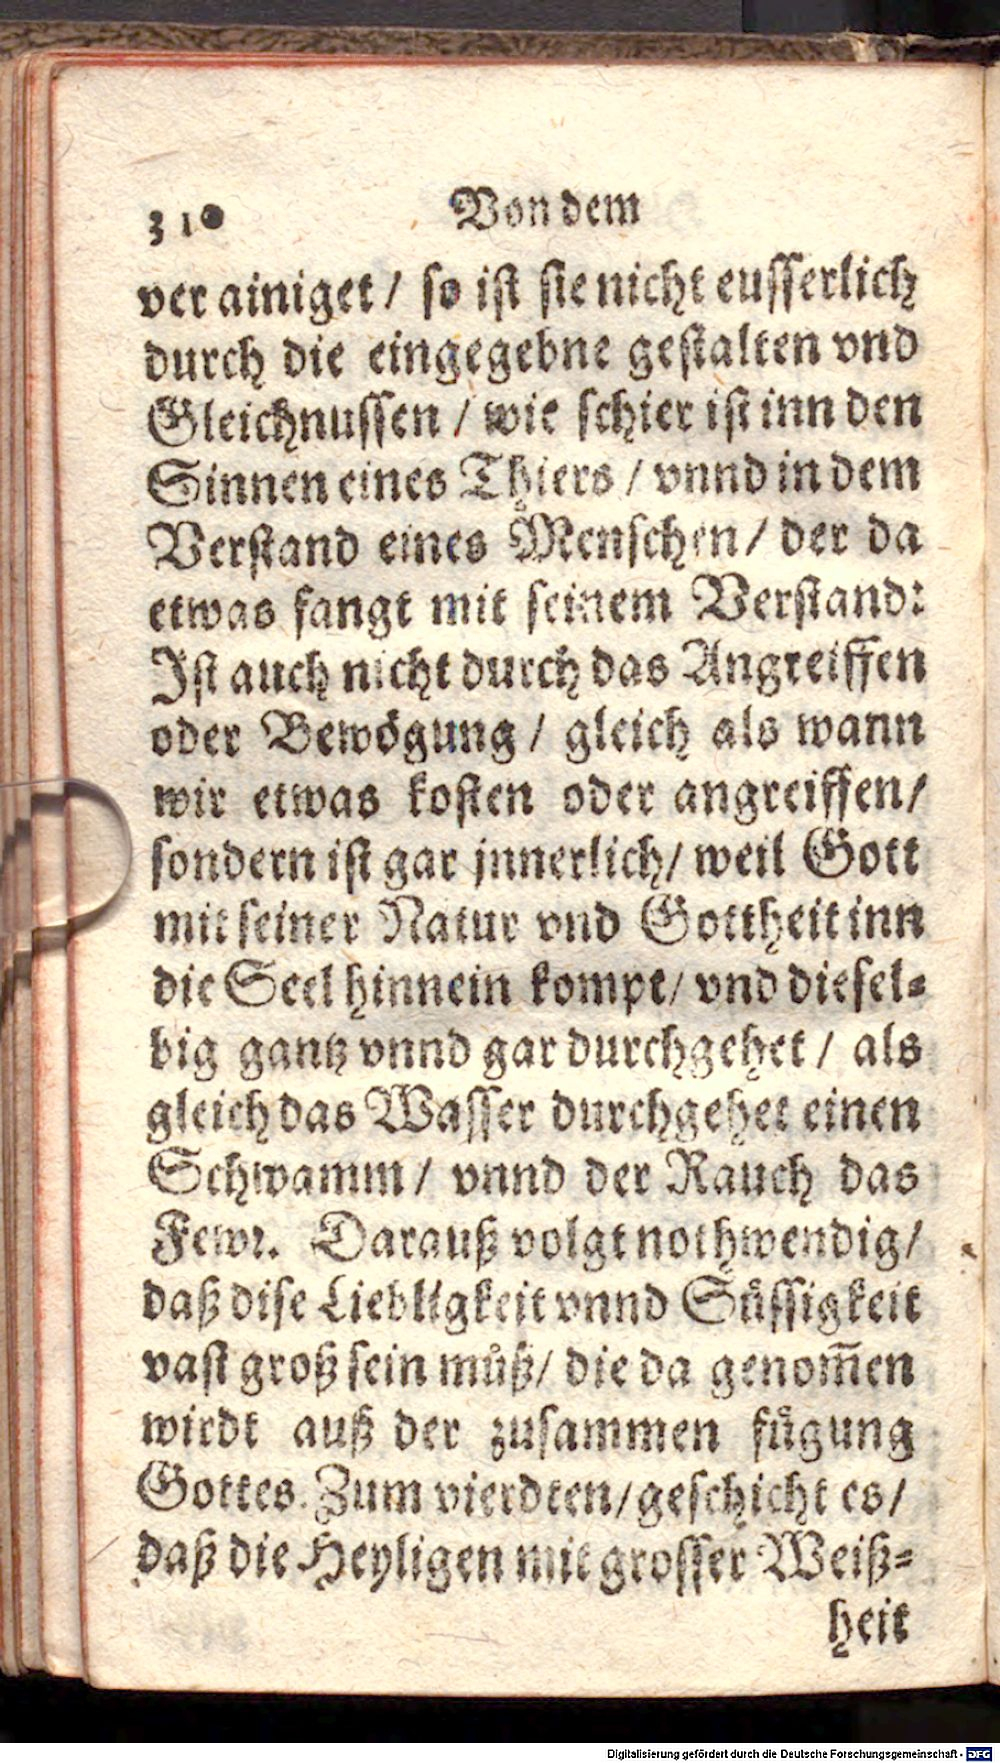 310 Von dem
ver ainiget / so ist sie nicht eusserlich
durch die eingegebne gestalten vnd
Gleichnussen / wie schier ist inn den
Sinnen eines Thiers / vnnd in dem
Verstand eines Menschen / der da
etwas fangt mit seinem Verstand:
Ist auch nicht durch das Angreiffen
oder Bewögung / gleich als wann
wir etwas kosten oder angreiffen /
sondern ist gar jnnerlich / weil Gott
mit seiner Natur vnd Gottheit inn
die Seel hinnein kompt / vnd diesel-
big gantz vnnd gar durchgehet / als
gleich das Wasser durchgehet einen
Schwamm / vnnd der Rauch das
Fewr. Darauß volgt nothwendig /
daß dise Liebligkeit vnnd Süssigkeit
vast groß sein můß / die da genom̃en
wirdt auß der zusammen fügung
Gottes. Zum vierdten / geschicht es /
daß die Heyligen mit grosser Weiß-
heit
Digitalisierung gefördert durch die Deutsche Forschungsgemeinschaft - DFG